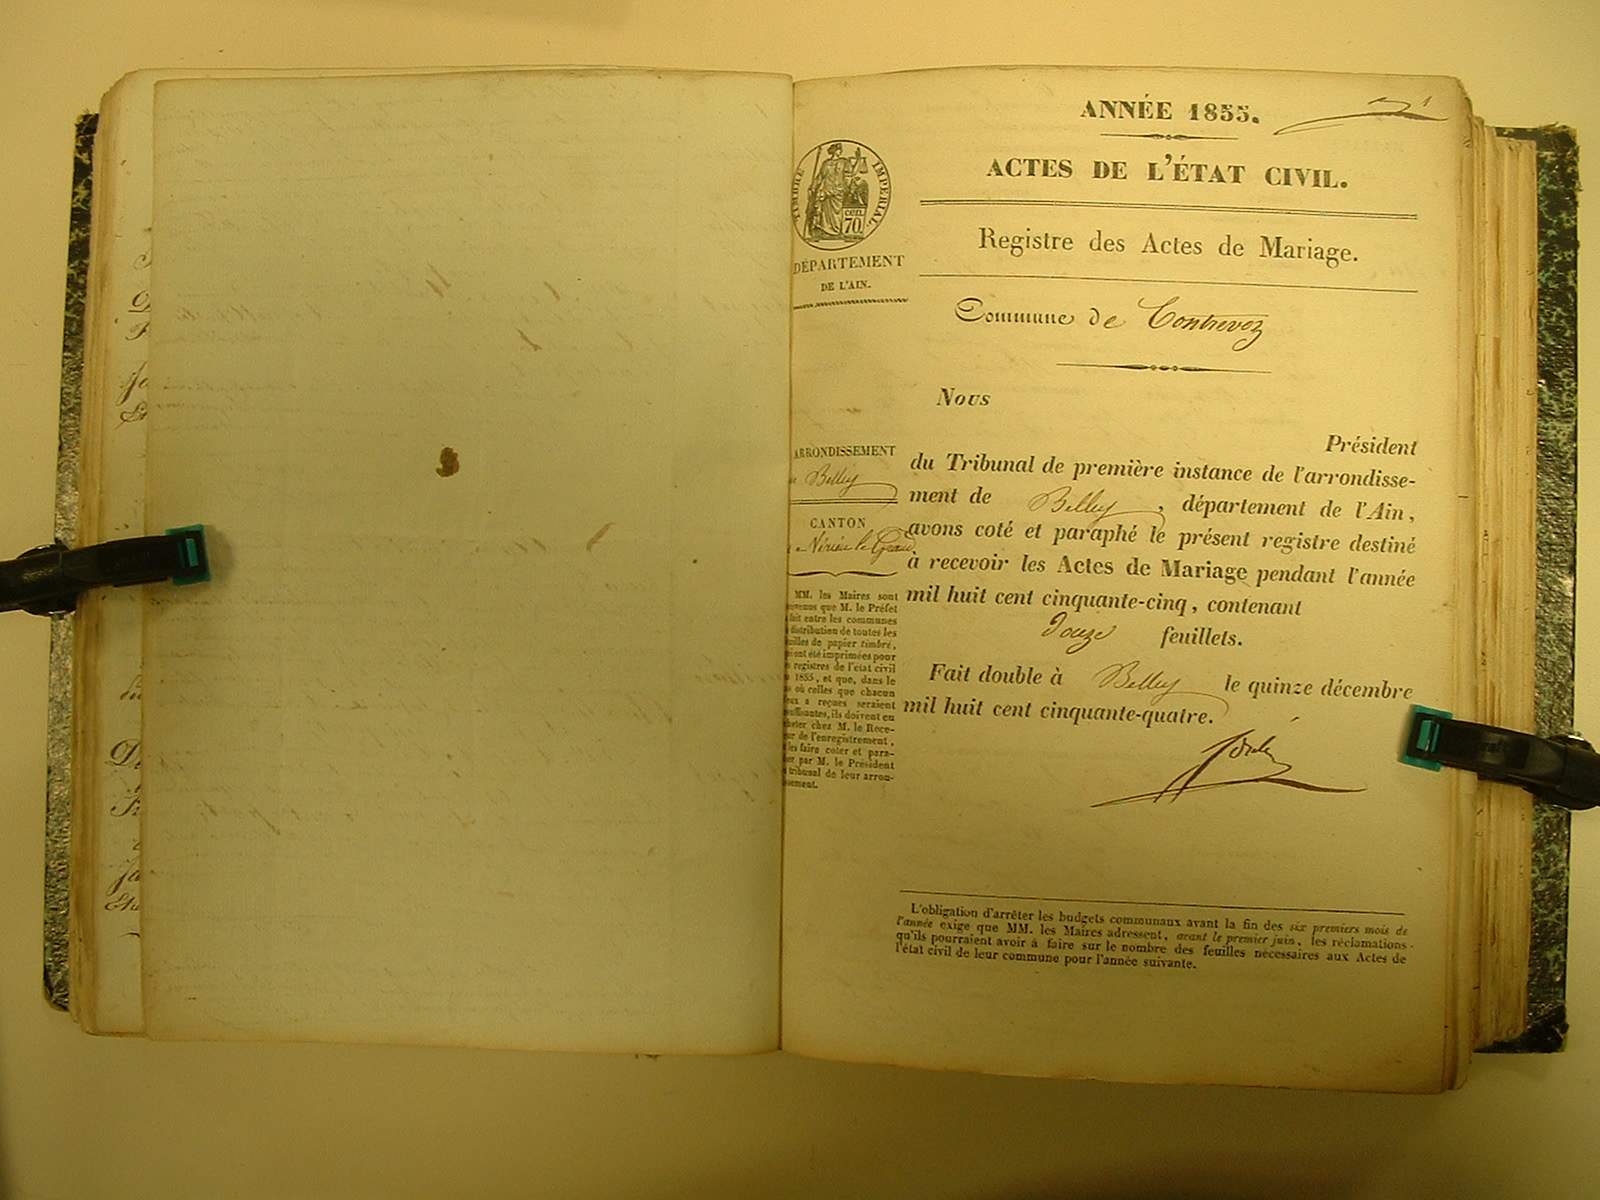 ANNÉE 1855.
1
ACTES DE L'ÉTAT CIVIL.
TIMBRE IMPÉRIAL
CENT.
70
Registre des Actes de Mariage.
DÉPARTEMENT
DE L'AIN.
Commune de Contrevoz
Nous
Président
du Tribunal de première instance de l'arrondisse-
ment de Belley, département de l'Ain,
avons coté et paraphé le présent registre destiné
à recevoir les Actes de Mariage pendant l'année
mil huit cent cinquante-cinq, contenant
douze feuillets.
Fait double à Belley le quinze décembre
mil huit cent cinquante-quatre.
ARRONDISSEMENT
Belley
CANTON
Virieu le Grand
MM. les Maires sont
que M. le Préfet
fait entre les communes
distribution de toutes les
de papier timbré,
ont été imprimées pour
registres de l'état civil
1855, et que, dans le
où celles que chacun
a reçues seraient
ils doivent en
chez M. le Rece-
de l'enregistrement,
les faire coter et para-
par M. le Président
tribunal de leur arron-
L'obligation d'arrêter les budgets communaux avant la fin des six premiers mois de
l'année exige que MM. les Maires adressent, avant le premier juin, les réclamations
qu'ils pourraient avoir à faire sur le nombre des feuilles nécessaires aux Actes de
l'état civil de leur commune pour l'année suivante.